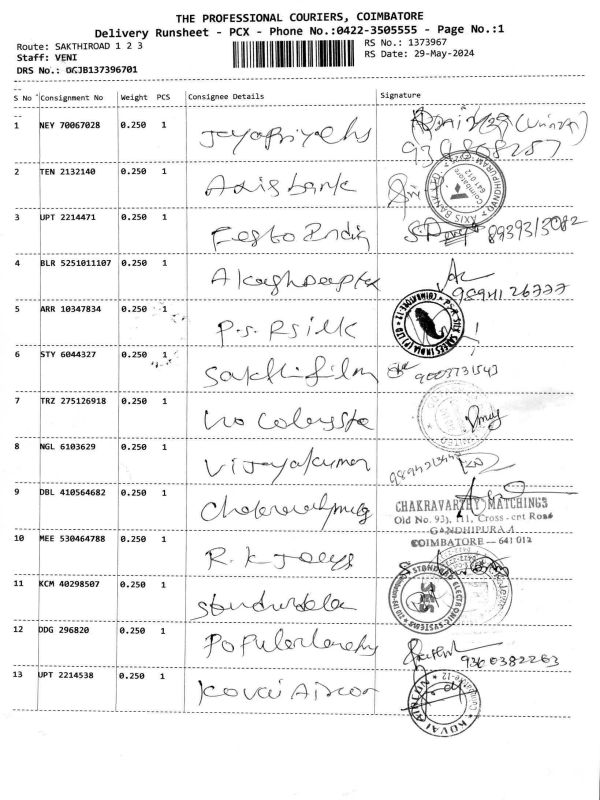 THE PROFESSIONAL COURIERS, COIMBATORE
Delivery Runsheet - PCX - Phone No.:0422-3505555 - Page No.:1
Route: SAKTHIROAD 1 2 3 RS No.: 1373967
Staff: VENI RS Date: 29-May-2024
DRS No.: GGJB137396701
S No Consignment No Weight PCS Consignee Details Signature
1 NEY 70067028 0.250 1
2 TEN 2132140 0.250 1 Axis bank
AXIS BANK GANDHIPURAM Coimbatore 641 012
3 UPT 2214471 0.250 1 Festo India 8939313082
4 BLR 5251011107 0.250 1 9894126777
5 ARR 10347834 0.250 1 P.S.R Silk
P.S.R SILK SAREES INDIA (P) LTD COIMBATORE-12
6 STY 6044327 0.250 1 Sakthi film 9003731543
7 TRZ 275126918 0.250 1
8 NGL 6103629 0.250 1 Vijayakumar
9 DBL 410564682 0.250 1
CHAKRAVARTHY MATCHINGS
Old No. 93), 111, Cross-cut Road
GANDHIPURAM
COIMBATORE - 641 012
10 MEE 530464788 0.250 1 R.K
11 KCM 40298507 0.250 1
STANDARD ELECTRONIC SYSTEMS
SES
12 DDG 296820 0.250 1 9360382263
13 UPT 2214538 0.250 1 Kovai Aircon
KOVAI AIRCON Coimbatore-12